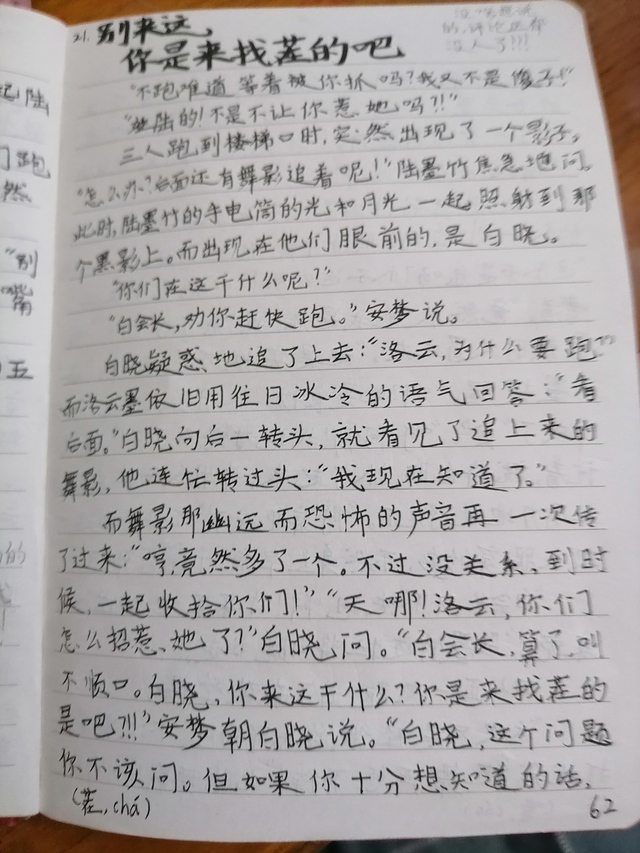 没啥想说
的,评论区都
没人了!!!
21. 别来这,
你是来找茬的吧
“不跑难道等着被你抓吗?我又不是傻子!”
“姓陆的!不是不让你惹她吗?!”
三人跑到楼梯口时,突然出现了一个影子。
“怎么办?后面还有舞影追着呢!”陆墨竹焦急地问。
此时,陆墨竹的手电筒的光和月光一起照射到那
个黑影上。而出现在他们眼前的,是白晓。
“你们在这干什么呢?”
“白会长,劝你赶快跑。”安梦说。
白晓疑惑地追了上去:“洛云,为什么要跑?”
而洛云墨依旧用往日冰冷的语气回答:“看
后面。”白晓向后一转头,就看见了追上来的
舞影,他连忙转过头:“我现在知道了。”
而舞影那幽远而恐怖的声音再一次传
了过来:“哼,竟然多了一个。不过没关系,到时
候,一起收拾你们!”“天哪!洛云,你们
怎么招惹她了?”白晓问。“白会长,算了,叫
不顺口。白晓,你来这干什么?你是来找茬的
是吧?!!”安梦朝白晓说。“白晓,这个问题
你不该问。但如果你十分想知道的话,
(茬,chá)
62
起陆
门跑
然
“别
嘴
五
的